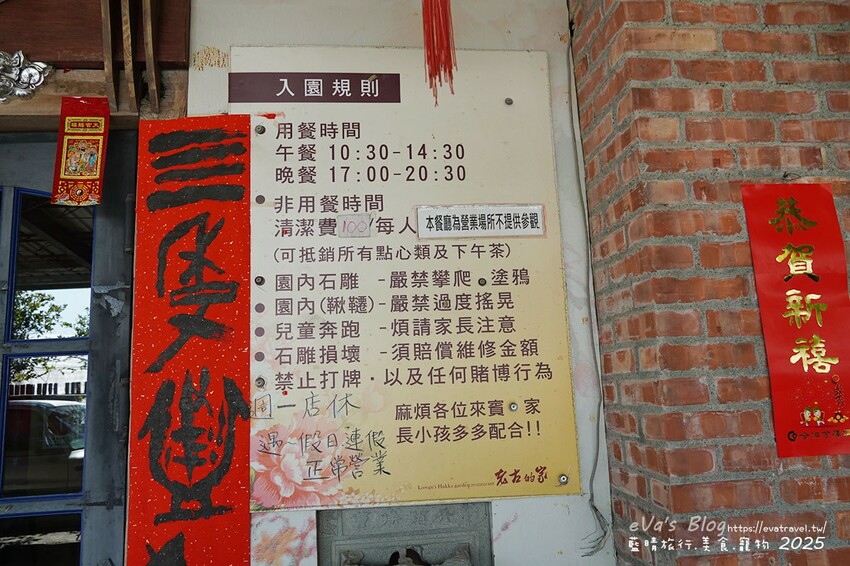 入園規則
用餐時間
午餐 10:30-14:30
晚餐 17:00-20:30
非用餐時間
清潔費100/每人
本餐廳為營業場所不提供參觀
(可抵銷所有點心類及下午茶)
園內石雕 -嚴禁攀爬.塗鴉
園內(鞦韆)-嚴禁過度搖晃
兒童奔跑 -煩請家長注意
石雕損壞 -須賠償維修金額
禁止打牌.以及任何賭博行為
週一店休
遇 假日連假
正常營業
麻煩各位來賓 家
長小孩多多配合!!
老古的家
恭賀新禧
eVa's Blog https://evatravel.tw/
藍晴旅行.美食.寵物 2025